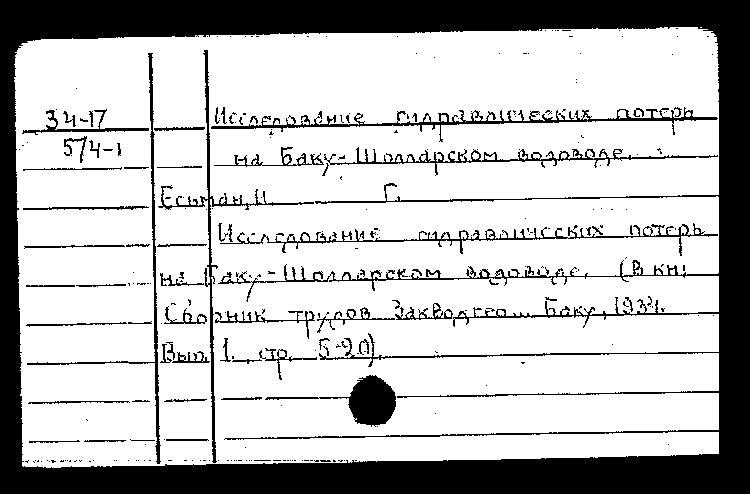 34-17
574-1
Исследование гидравлических потерь
на Баку-Шолларском водоводе.
Есьман, И Г.
Исследование гидравлических потерь
на Баку-Шолларском водоводе. (В кн:
Сборник трудов Закводгео... Баку, 1934.
Вып. 1. стр. 5-20).